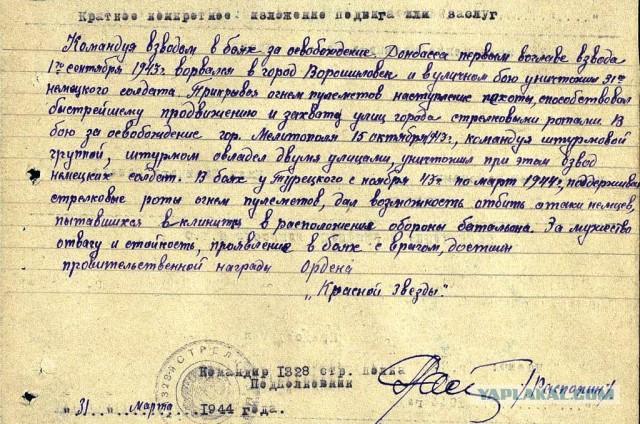 Краткое конкретное изложение подвига или заслуг
Командуя взводом в боях за освобождение Донбасса первым во главе взвода
1го сентября 1943г. ворвался в город Ворошиловск и в уличном бою уничтожил
немецкого солдата. Прикрывая огнем пулеметов наступление пехоты, способствовал
быстрейшему продвижению и захвату улиц города стрелковыми ротами. В
бою за освобождение гор. Мелитополя 15 октября 43г., командуя штурмовой
группой, штурмом овладел двумя улицами, уничтожил при этом взвод
немецких солдат. В боях у Турецкого с ноября 43г. по март 1944г., поддерживая
стрелковые роты огнем пулеметов, дал возможность отбить атаки немцев,
пытавшихся вклинить в расположение обороны батальона. За мужество
отвагу и стойкость, проявление в боях с врагом, достоин
правительственной награды Ордена
„Красной Звезды".
Командир 1328 стр. полка
Подполковник
/Распопин/
"31" марта 1944 года.
1328-й СТРЕЛК
YAPLAKAL.COM